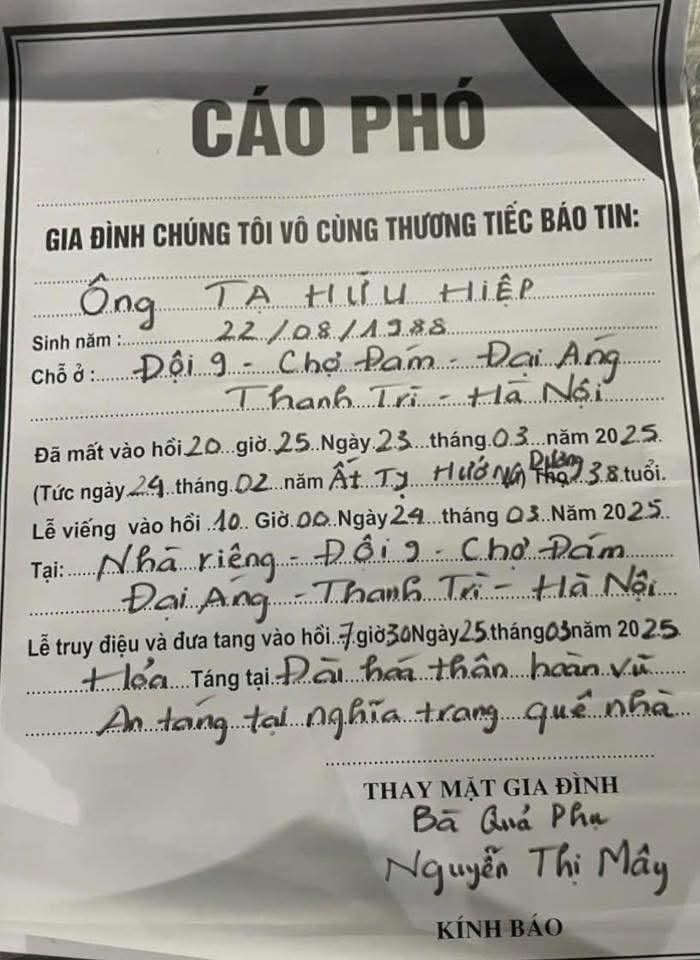 CÁO PHÓ
GIA ĐÌNH CHÚNG TÔI VÔ CÙNG THƯƠNG TIẾC BÁO TIN:
Ông TẠ HỮU HIỆP
Sinh năm: 22/08/1988
Chỗ ở: Đội 9 - Chợ Đám - Đại Áng
Thanh Trì - Hà Nội
Đã mất vào hồi 20 giờ 25 Ngày 23 tháng 03 năm 2025
(Tức ngày 24 tháng 02 năm Ất Tỵ Hưởng Dương 38 tuổi.
Lễ viếng vào hồi 10 Giờ 00 Ngày 24 tháng 03 Năm 2025
Tại: Nhà riêng - Đội 9 - Chợ Đám
Đại Áng - Thanh Trì - Hà Nội
Lễ truy điệu và đưa tang vào hồi 7 giờ 30 Ngày 25 tháng 03 năm 2025
Hỏa Táng tại Đài hoá thân hoàn vũ
An táng tại nghĩa trang quê nhà
THAY MẶT GIA ĐÌNH
Bà Quả Phụ
Nguyễn Thị Mây
KÍNH BÁO